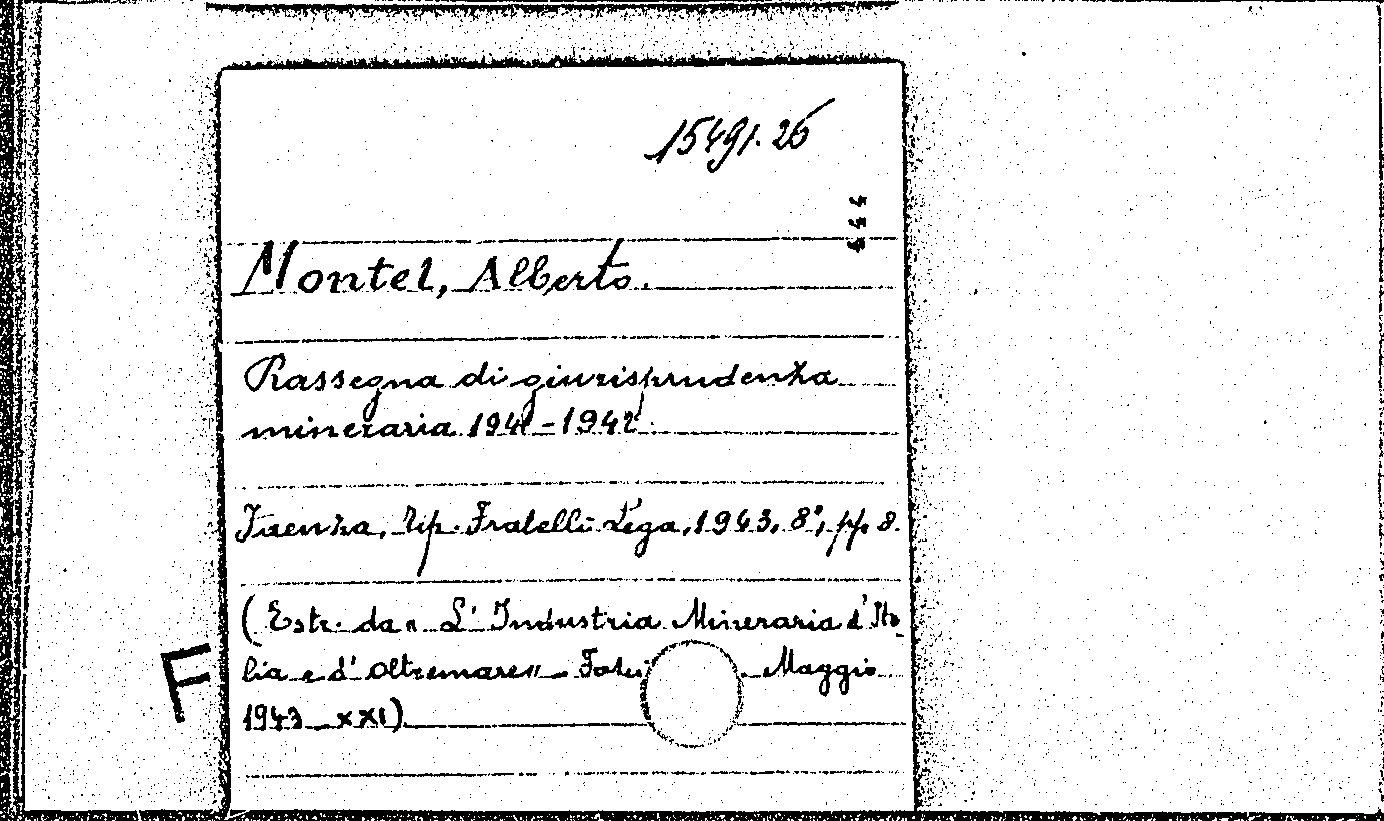 15491.26
444
Montel, Alberto.
Rassegna di giurisprudenza
mineraria 1941-1942
Faenza, Tip. Fratelli Lega, 1943, 8°, pp. 8.
(Estr. da " L'Industria Mineraria d'Ita-
lia e d'oltremare " - Maggio
1943 - XXI)
F